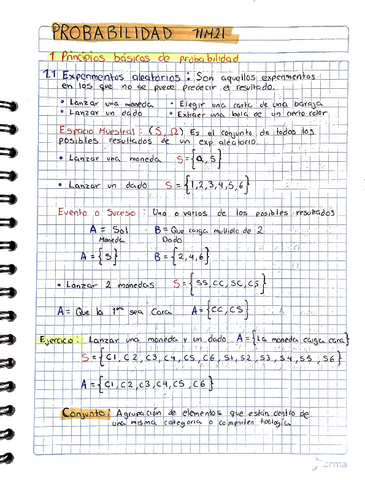 PROBABILIDAD 11M21
1 Principios básicos de probabilidad
1.1 Experimentos aleatorios: Son aquellos experimentos
en los que no se puede predecir el resultado.
• Lanzar una moneda • Elegir una carta de una baraja
• Lanzar un dado • Extraer una bola de un cierto color
Espacio Muestral: (S, Ω) Es el conjunto de todos los
posibles resultados de un exp aleatorio.
• Lanzar una moneda S={a, s}
• Lanzar un dado S={1,2,3,4,5,6}
Evento o Suceso: Uno o varios de los posibles resultados
A = Sol B = Que caiga multiplo de 2
Moneda Dado
A={S} B={2,4,6}
• Lanzar 2 monedas S={SS, CC, SC, CS}
A= Que la 1era sea Cara A={CC, CS}
Ejercicio: Lanzar una moneda y un dado A={La moneda caiga cara}
S={C1, C2, C3, C4, C5, C6, S1, S2, S3, S4, S5, S6}
A={C1, C2, C3, C4, C5, C6}
Conjunto: Agrupación de elementos que están dentro de
una misma categoria o comparten